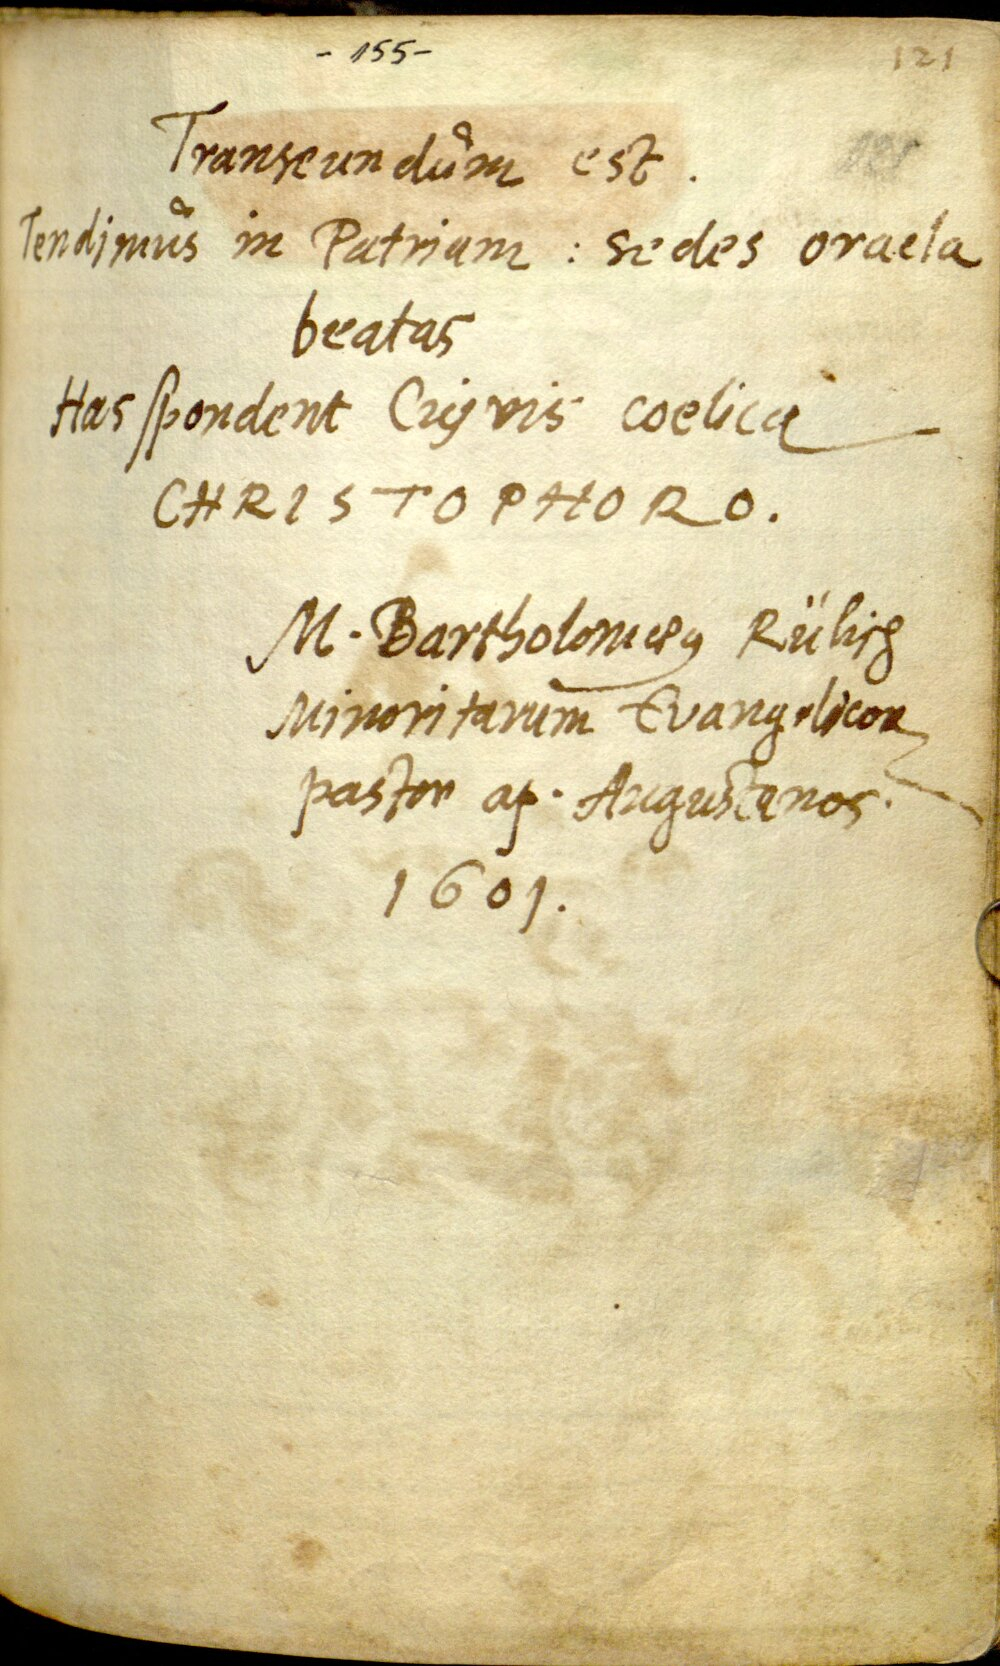 - 155 -
121
Transeundum est.
Tendimus in Patriam: sedes oracla
beatas
Has spondent vis coelica
CHRISTOPHORO.
M. Bartholomæus Rülich
Minoritarum Evangelicor
pastor ap. Augustanos.
1601.